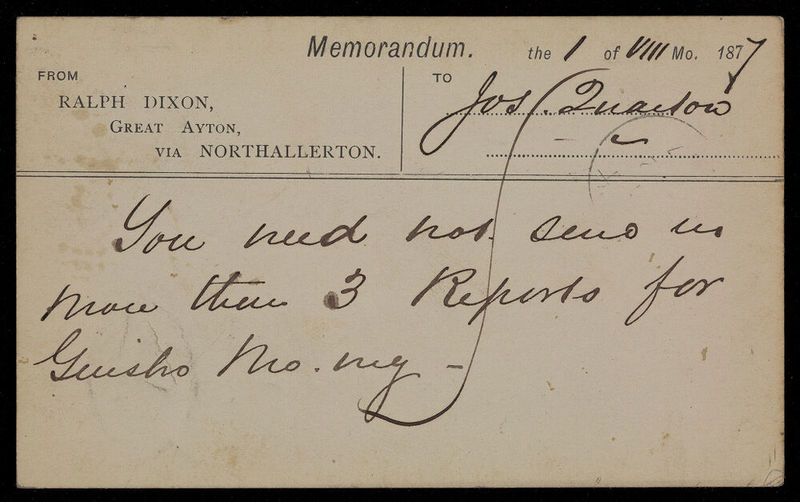 Memorandum. the 1 of VIII Mo. 1877
FROM
RALPH DIXON,
GREAT AYTON,
VIA NORTHALLERTON.
TO
Jos. Quarton
You need not send us
more than 3 Reports for
Guisbro Mo. mg -